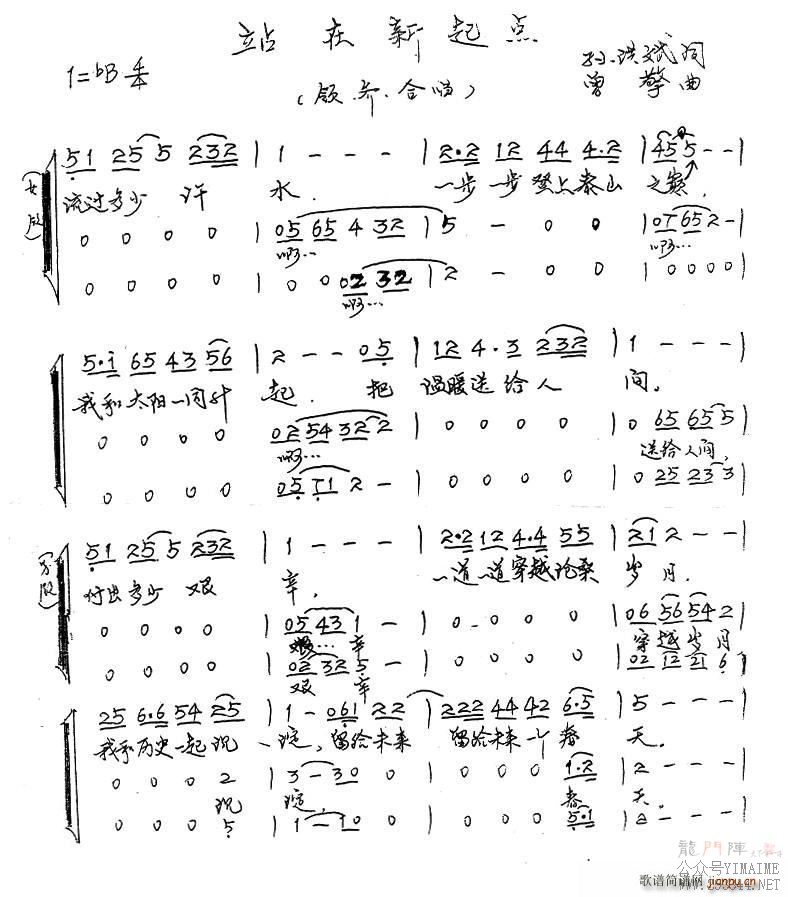 站在新起点
1=bB 4/4
(领齐.合唱)
词
曾 擎 曲
5 1 2 5 5 2 3 2 | 1 - - - | 2·2 1 2 4 4 4·2 | 4 5 5 - - |
流过多少 许 水. 一步一步登上泰山 之
0 0 0 0 | 0 5 6 5 4 3 2 | 5 - 0 0 | 0 7 6 5 2 - |
啊… 啊…
0 0 0 0 | 0 0 0 2 3 2 | 2 - 0 0 | 0 0 0 0 |
啊…
5·i 6 5 4 3 5 6 | 2 - - 0 5 | 1 2 4·3 2 3 2 | 1 - - - |
我和太阳一同升 起. 把 温暖送给人 间。
0 0 0 0 | 0 2 5 4 3 2 2 | 0 0 0 0 | 0 6 5 6 5 5 |
啊… 送给人间,
0 0 0 0 | 0 5 7 1 2 - | 0 0 0 0 | 0 2 5 2 3 3 |
5 1 2 5 5 2 3 2 | 1 - - - | 2·2 1 2 4·4 5 5 | 2 1 2 - - |
付出多少 艰 辛. 一道一道穿越沧桑 岁月.
0 0 0 0 | 0 5 4 3 1 - | 0 0 0 0 | 0 6 5 6 5 4 2 |
艰… 辛 穿越岁月
0 0 0 0 | 0 2 3 2 5 - | 0 0 0 0 | 0 2 1 2 2 1 6 |
艰 辛
2 5 6·6 5 4 2 5 | 1 - 0 6 1 2 2 | 2 2 2 4 4 4 2 6·5 | 5 - - - |
我和历史一起沉 淀, 留给未来 留给未来一个春 天.
0 0 0 2 | 3 - 3 0 0 | 0 0 0 1·2 | 2 - - - |
沉 淀, 春 天.
0 0 0 5 | 1 - 1 0 0 | 0 0 0 5·1 | 2 - - - |
龍門陣
公众号YIMAIME
歌谱简谱网 jianpu.cn